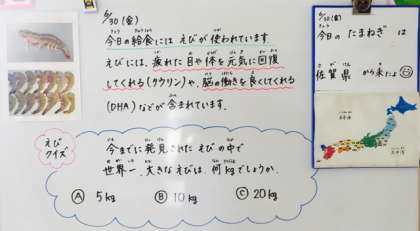 6/30 (金)
今日の給食にはえびが使われています。
えびには、疲れた目や体を元気に回復
してくれる(タウリン)や、脳の働きを良くしてくれる
(DHA)などが含まれています。
えび
クイズ
今までに発見されたえびの中で
世界一、大きなえびは、何kgでしょうか。
Ⓐ 5kg Ⓑ 10kg Ⓒ 20kg
今日の たまねぎ は
佐賀県 から来たよ